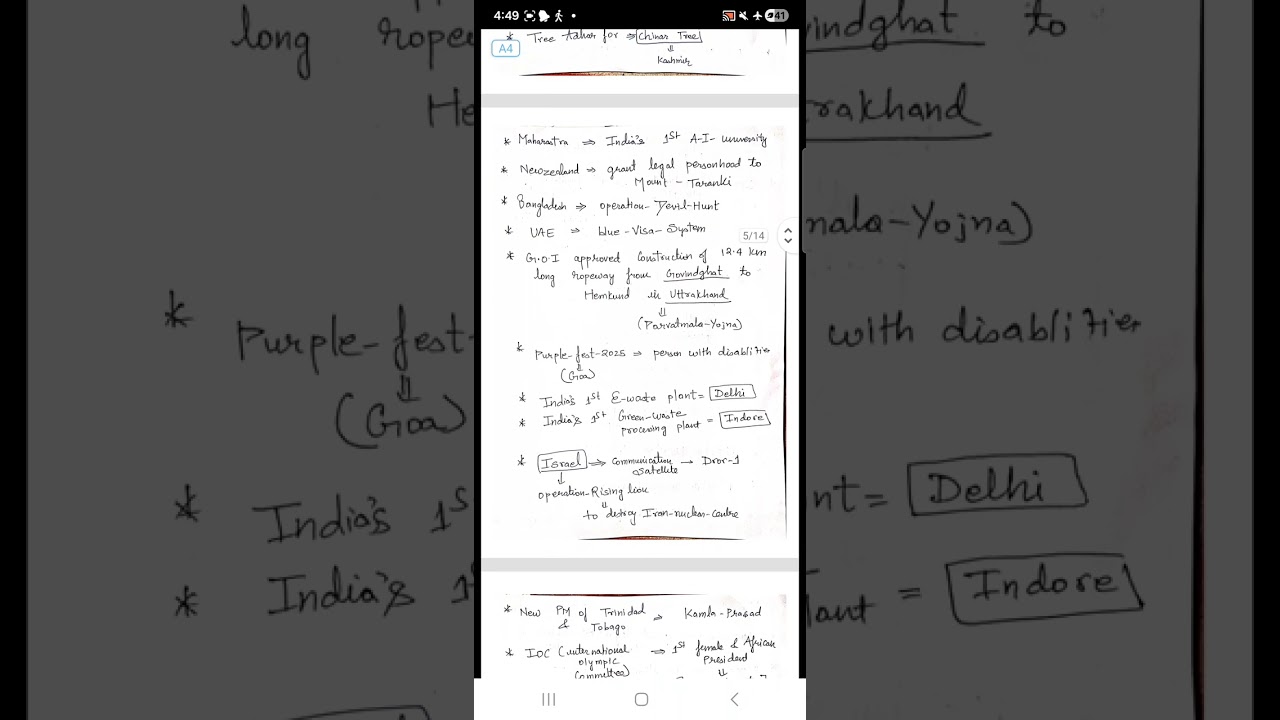 4:49
41
* Tree Adhar for ⇒ Chinar Tree
A4
⇓
Kashmir
* Maharastra ⇒ India's 1st A-I- university
* Newzealand ⇒ grant legal personhood to
Mount - Taranki
* Bangladesh ⇒ operation- Devil-Hunt
* UAE ⇒ blue-Visa-System
5/14
* G.O.I approved Construction of 12.4 km
long ropeway from Govindghat to
Hemkund in Uttrakhand
⇓
(Parvatmala-Yojna)
* Purple-fest-2025 ⇒ person with disablities
⇓
(Goa)
* India's 1st E-waste plant = Delhi
* India's 1st Green-waste
processing plant = Indore
* Israel ⇒ Communication → Dror-1
satellite
↓
operation-Rising lion
⇓
to destroy Iran-nuclear-centre
* New PM of Trinidad ⇒ Kamla-Prasad
& Tobago
* IOC (international ⇒ 1st female & African
olympic President
Committee) ⇓
long ropew
vindghat to
He
rakhand
mala-Yojna)
* Purple-fest-
with disablities
⇓
(Goa)
* India's 1st
nt = Delhi
* India's 1
lant = Indore